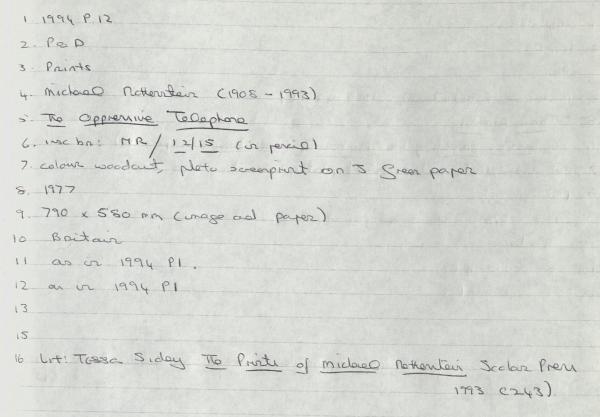 1 1994 P.12
2. P&D
3. Prints
4. Michael Rothenstein (1908 - 1993)
5. The Oppressive Telephone
6. insc br: MR / 12/15 (in pencil)
7. colour woodcut, photo screenprint on J Green paper
8. 1977
9. 790 x 580 mm (image and paper)
10 Britain
11 as in 1994 P1.
12 as in 1994 P1
13
15
16 Lit: Tessa Sidey The Prints of Michael Rothenstein Scolar Press
1993 (243)